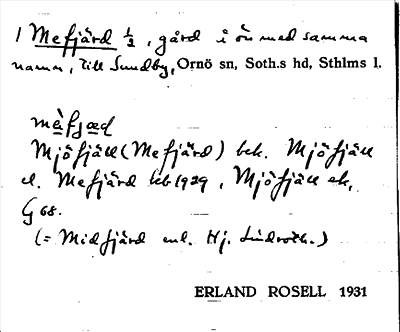 1 Mefjärd ½, gård i ön med samma
namn, till Sundby, Ornö sn, Soth.s hd, Sthlms l.
mè̀fjæd
Mjöfjäll (Mefjärd) bek. Mjöfjäll
el. Mefjärd kb 1929, Mjöfjäll ek.
G 68.
(= Midfjärd enl. Hj. Lindroth.)
ERLAND ROSELL 1931